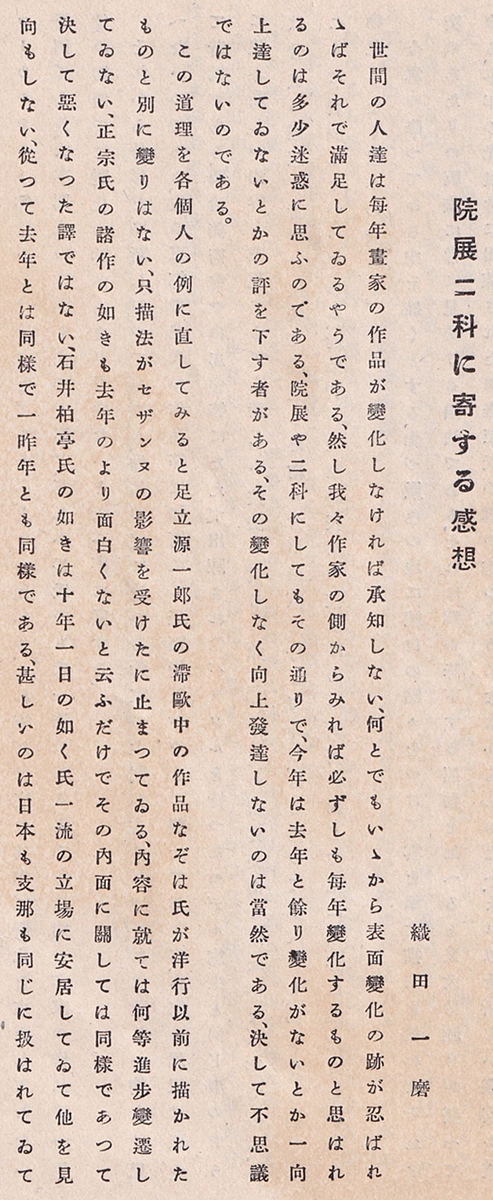 院展二科に寄する感想
織田一磨
世間の人達は毎年畫家の作品が變化しなければ承知しない、何とでもいゝから表面變化の跡が忍ばれ
ゝばそれで滿足してゐるやうである、然し我々作家の側からみれば必ずしも毎年變化するものと思はれ
るのは多少迷惑に思ふのである、院展や二科にしてもその通りで、今年は去年と餘り變化がないとか一向
上達してゐないとかの評を下す者がある、その變化しなく向上發達しないのは當然である、決して不思議
ではないのである。
この道理を各個人の例に直してみると足立源一郎氏の滯歐中の作品なぞは氏が洋行以前に描かれた
ものと別に變りはない、只描法がセザンヌの影響を受けたに止まつてゐる、內容に就ては何等進步變遷し
てゐない、正宗氏の諸作の如きも去年のより面白くないと云ふだけでその內面に關しては同樣であつて
決して惡くなつた譯ではない、石井柏亭氏の如きは十年一日の如く氏一流の立場に安居してゐて他を見
向もしない、從つて去年とは同樣で一昨年とも同樣である、甚しいのは日本も支那も同じに扱はれてゐて